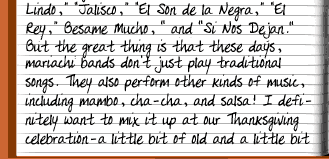 Lindo," "Jalisco," "El Son de la Negra," "El
Rey," Besame Mucho, " and "Si Nos Dejan."
But the great thing is that these days,
mariachi bands don't just play traditional
songs. They also perform other kinds of music,
including mambo, cha-cha, and salsa! I defi-
nitely want to mix it up at our Thanksgiving
celebration-a little bit of old and a little bit